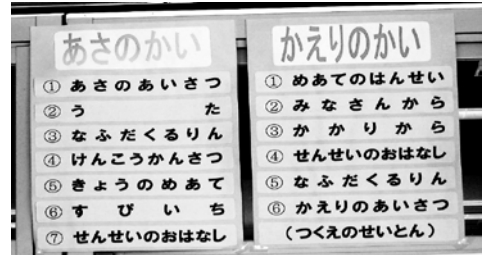 あさのかい
① あさのあいさつ
② うた
③ なふだくるりん
④ けんこうかんさつ
⑤ きょうのめあて
⑥ すびいち
⑦ せんせいのおはなし
かえりのかい
① めあてのはんせい
② みなさんから
③ かかりから
④ せんせいのおはなし
⑤ なふだくるりん
⑥ かえりのあいさつ
（つくえのせいとん）